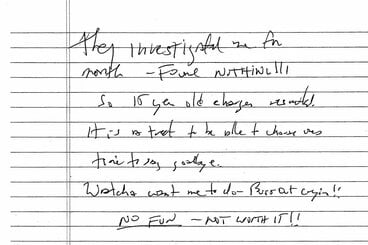 They investigated me for
month - Found NOTHING!!!
So 15 year old charges
It is to be able to choose
time to say goodbye.
Watcha want me to do - Burst out crying!!
NO FUN - NOT WORTH IT!!